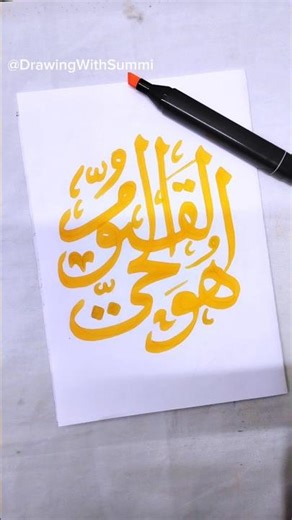 @DrawingWithSummi
هُوَ الحَيُّ القَيُّومُ